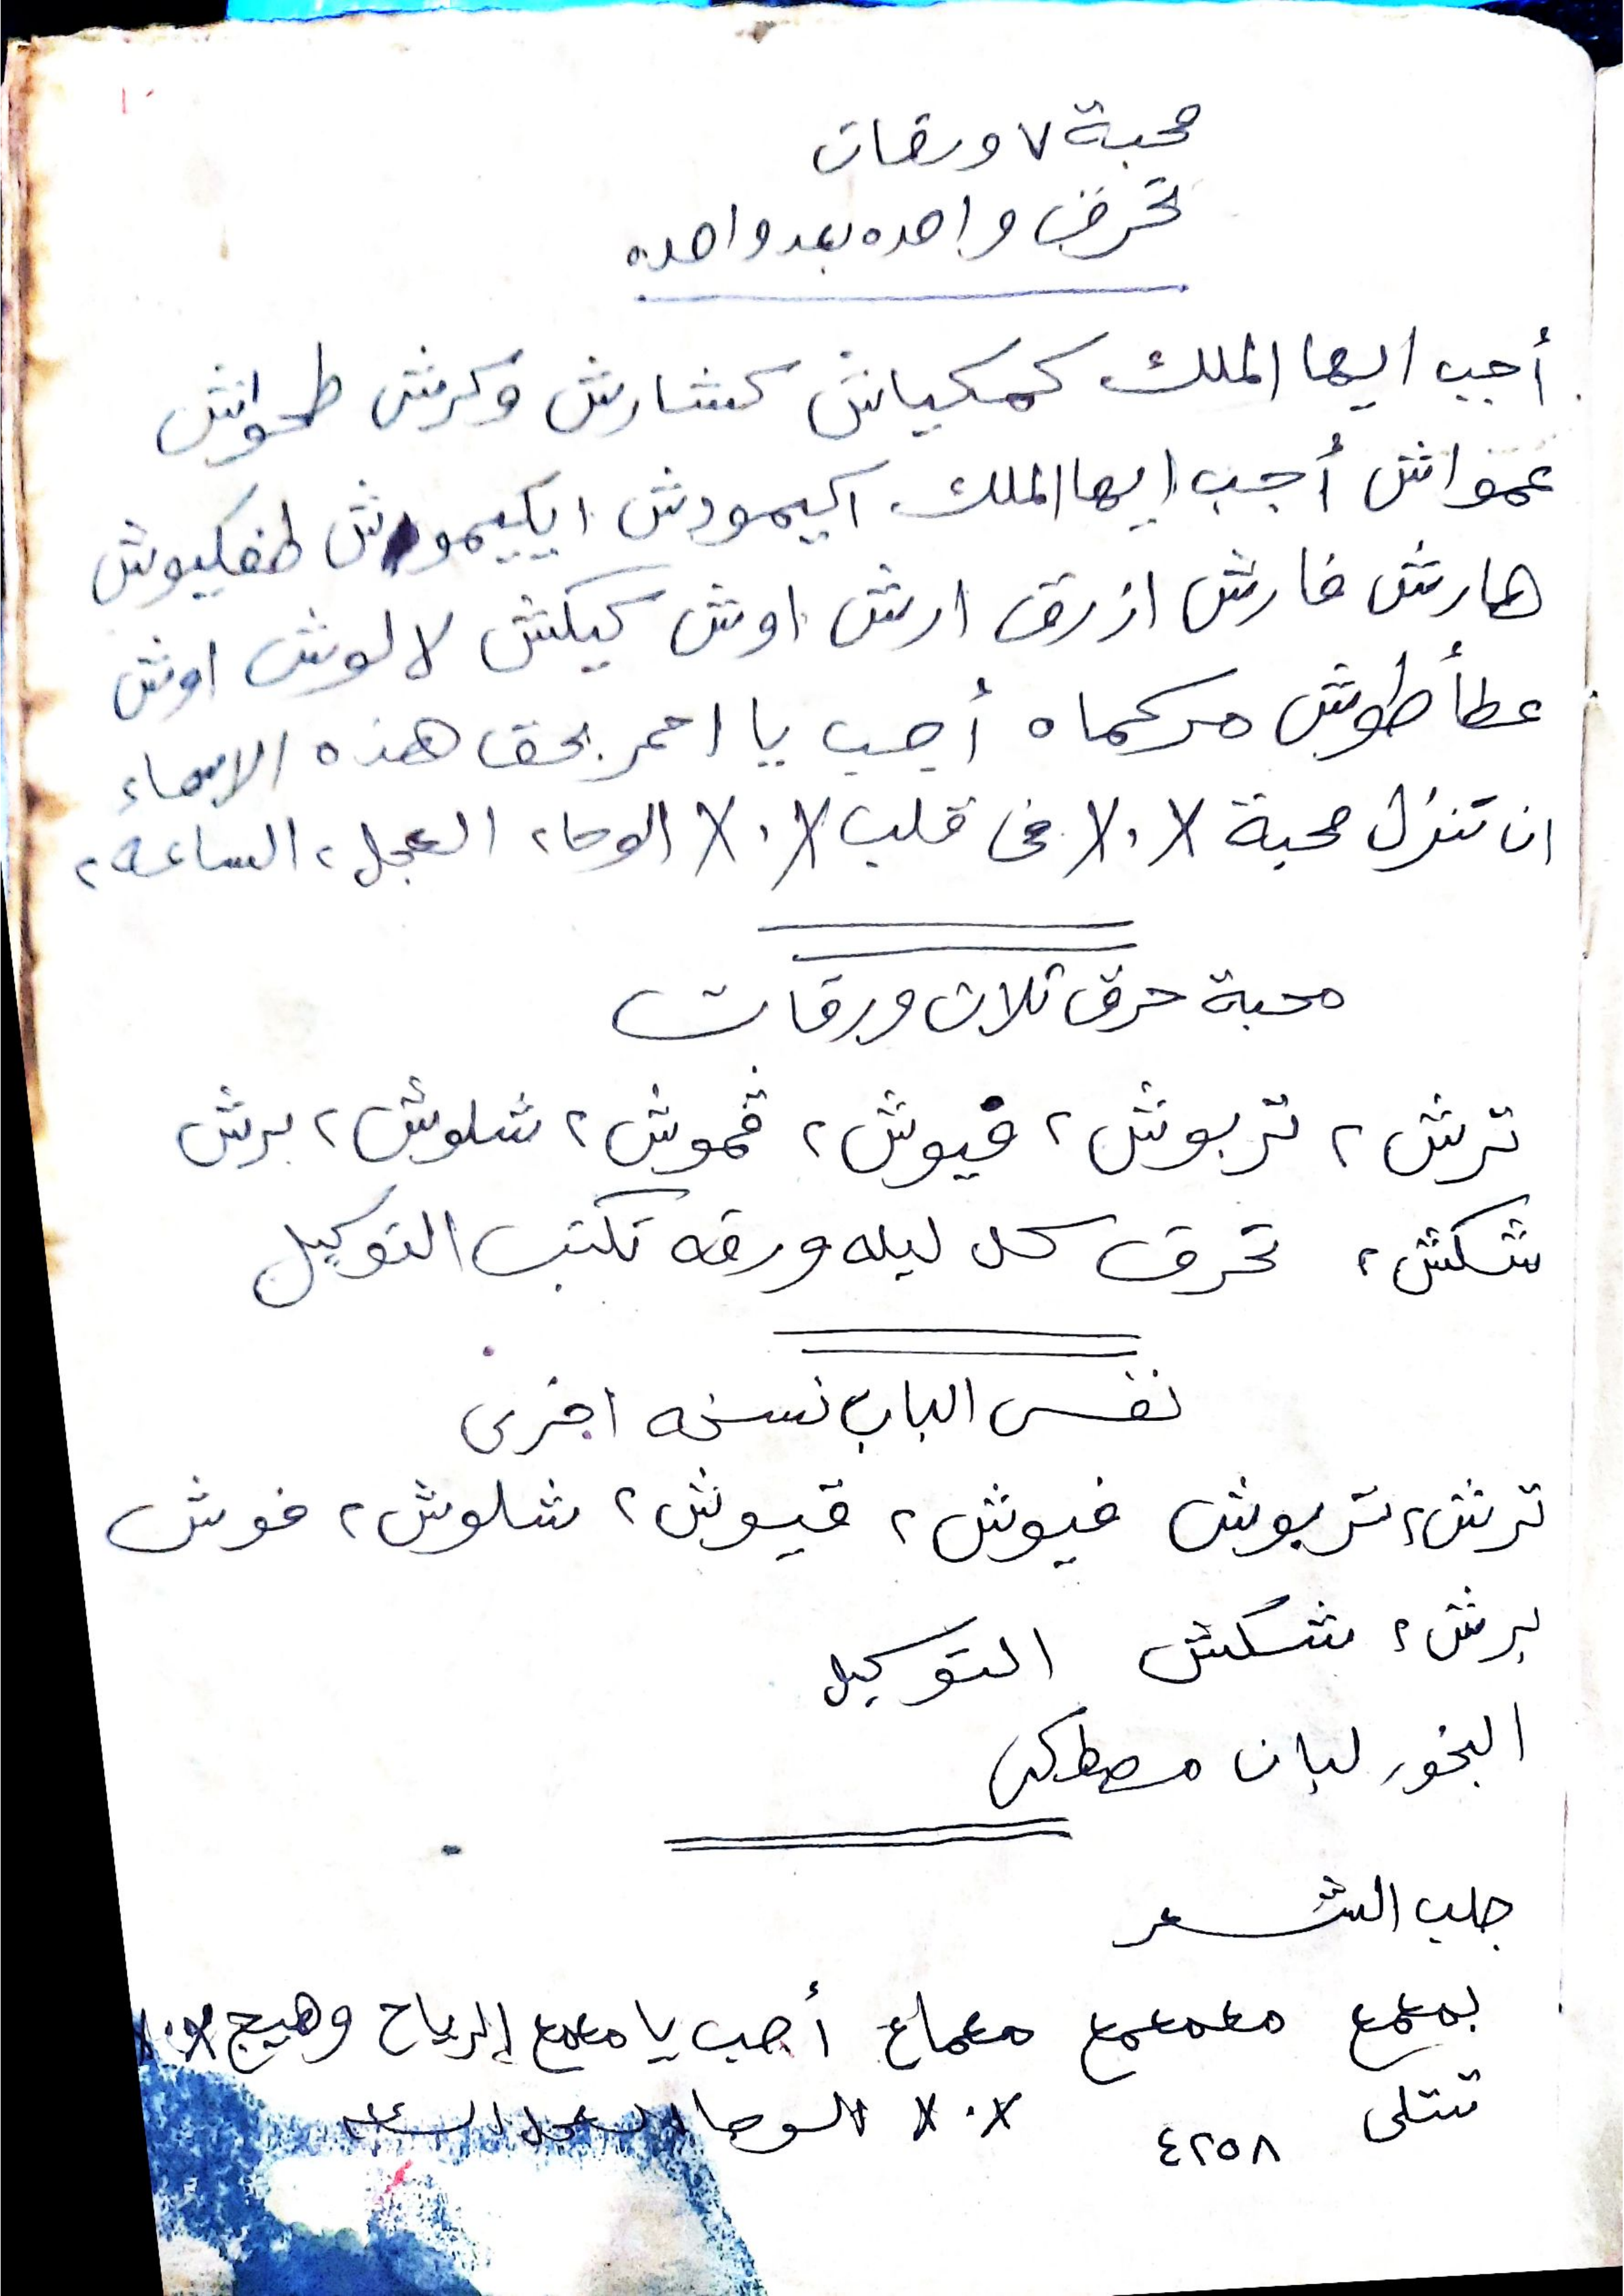 ١٠
محبة ٧ ورقات
تحرق واحده بعد واحده
أجب ايها الملك كمكياش كشارش وكرش طحواش
عمواش أجب ايها الملك اكيموش ايكيموش طفكيوش
هارش فارش ازرق ارش اوش كيكش لالوش اوش
عطأطوش مركماه أجب يا احمر بحق هذه الاسماء
ان تنزل محبة X٠X فى قلب X٠X الوحا٢ العجل٢ الساعه٢
محبة حرق ثلاث ورقات
ترش٢ تربوش٢ فيوش٢ قموش٢ شلوش٢ برش
شكش٢ تحرق كل ليله ورقه تكتب التوكيل
نفس الباب نسخه اخرى
ترش٢ تربوش فيوش٢ قيوش٢ شلوش٢ فوش
برش٢ شكش التوكيل
البخور لبان مصطكى
جلب الشعر
بمعمع معمعمع معماع أجب يا معمع الرياح وهيج X٠X
تتلى ٤٢٥٨ X٠X الوحا العجل الساعه